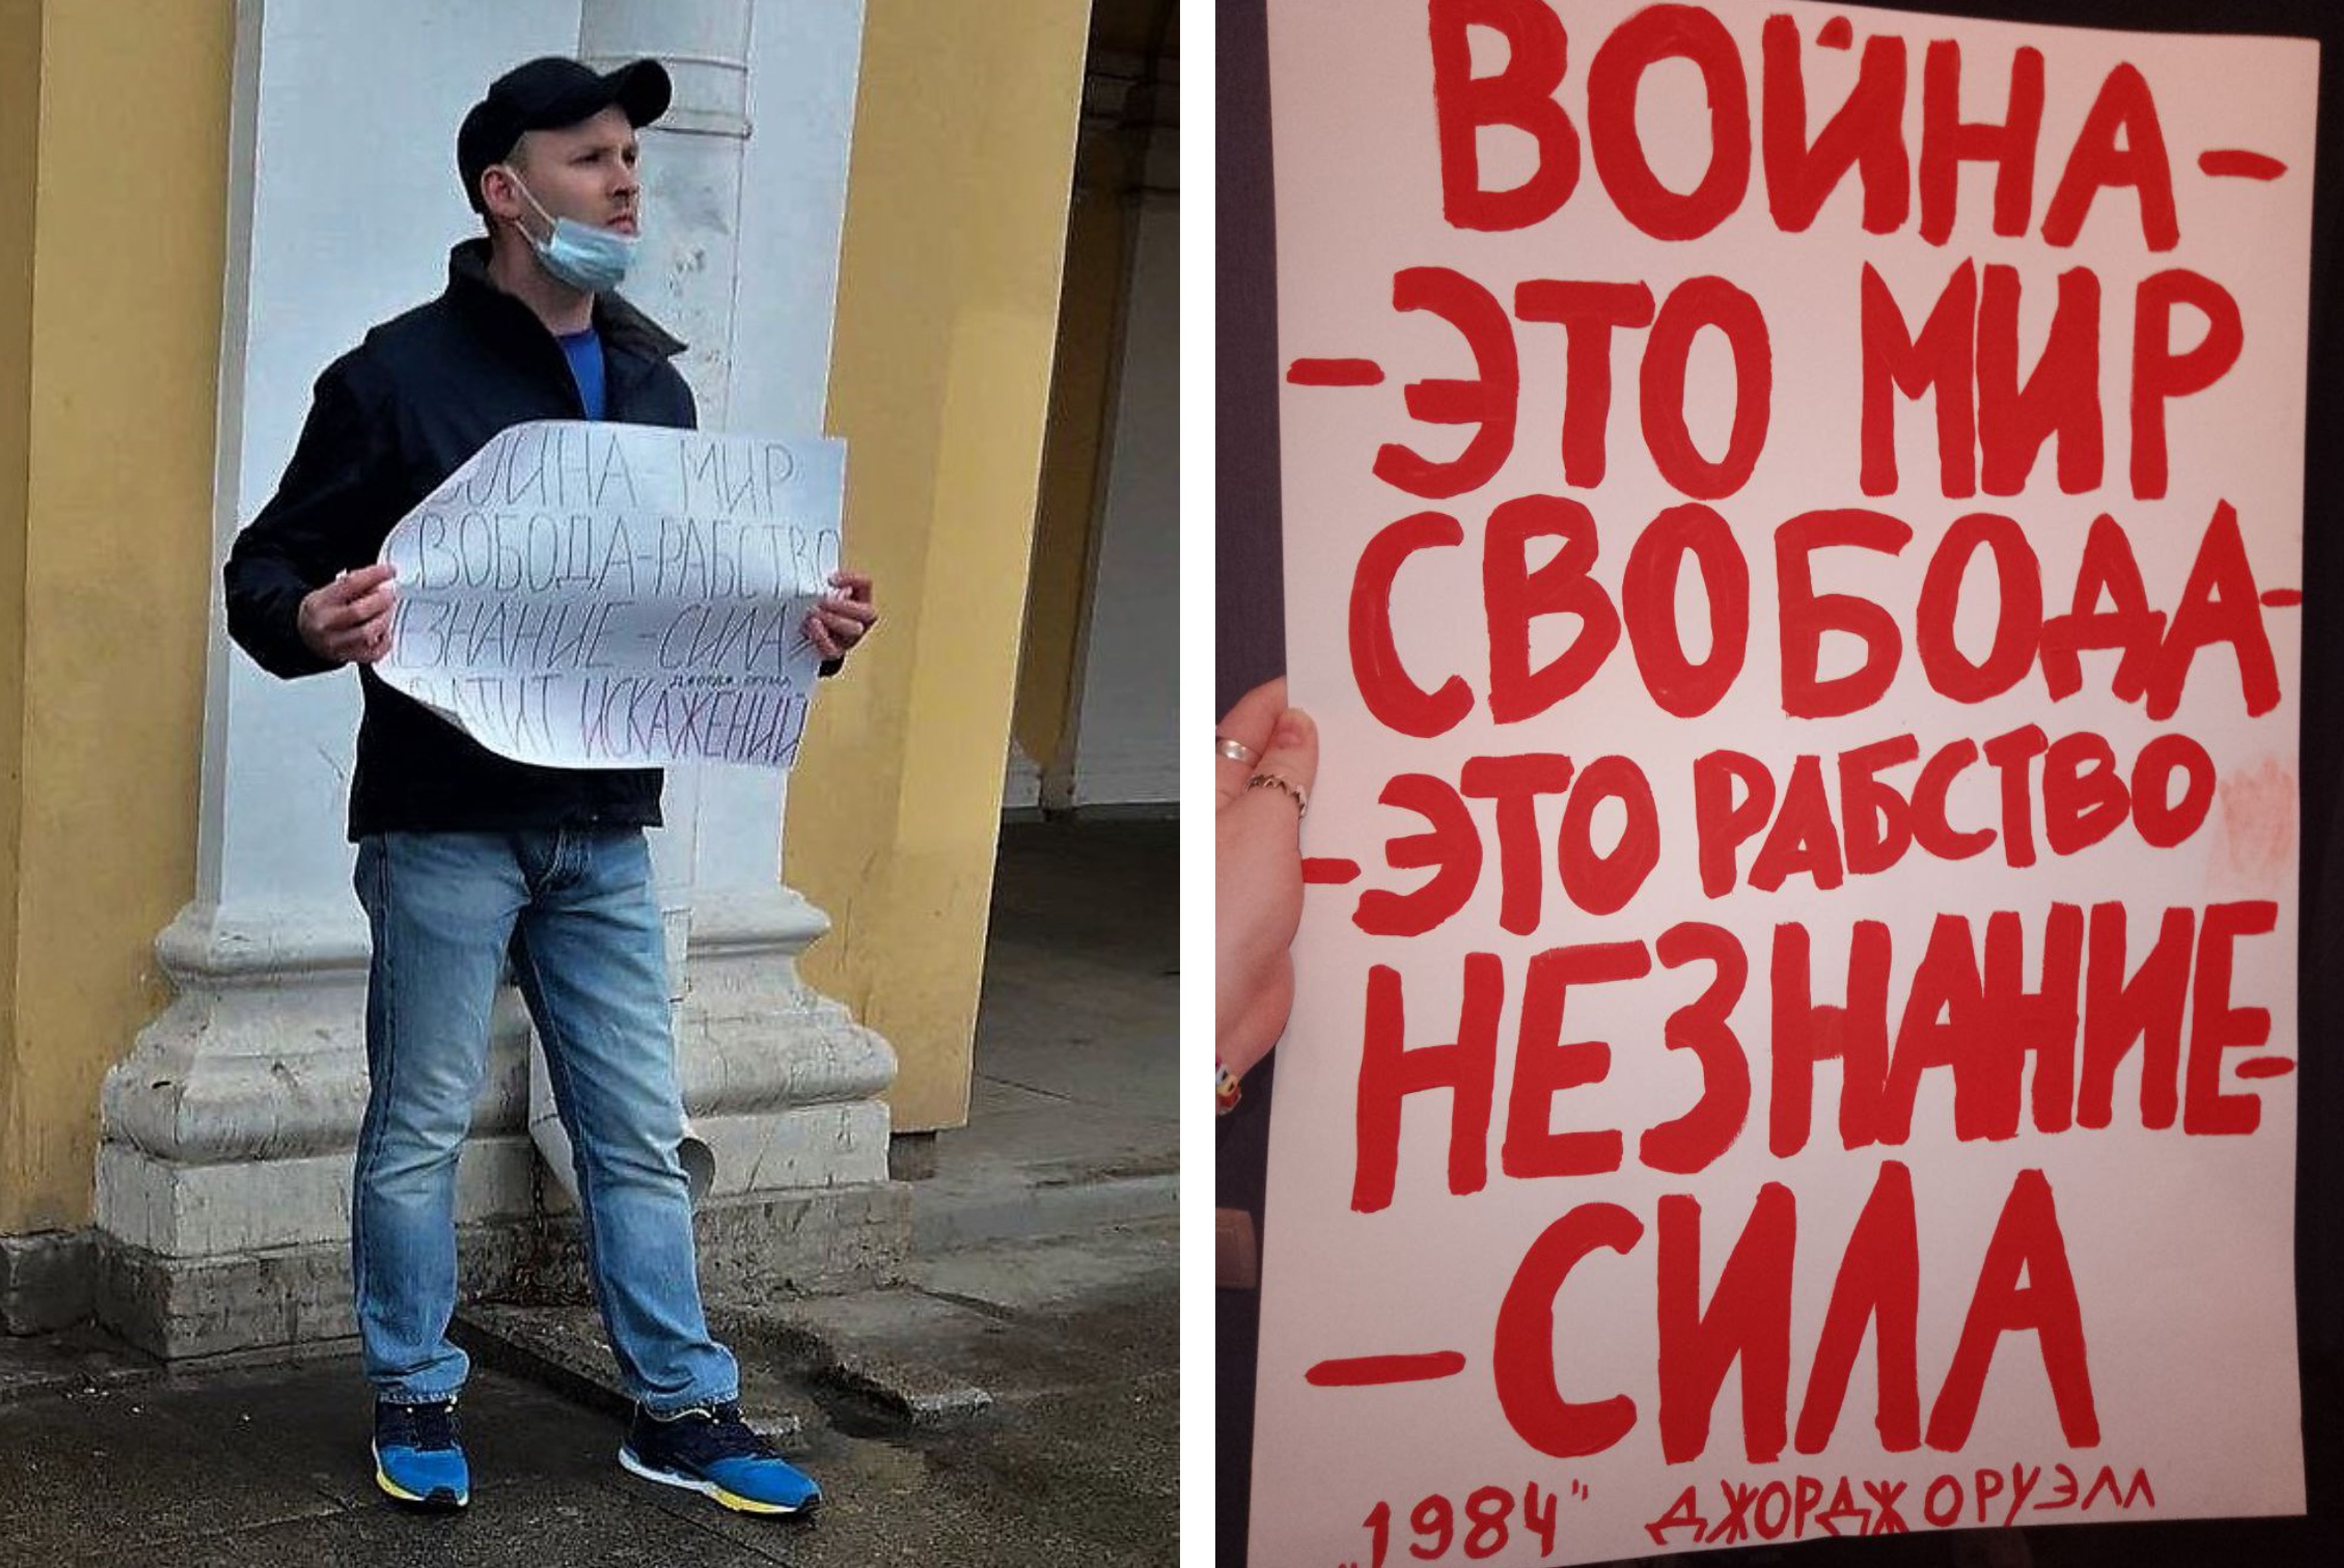 ВОЙНА - МИР
СВОБОДА-РАБСТВО
НЕЗНАНИЕ - СИЛА
ДЖОРДЖ ОРУЭЛЛ
ИСКАЖЕНИЙ
ВОЙНА-
-ЭТО МИР
СВОБОДА-
-ЭТО РАБСТВО
НЕЗНАНИЕ-
-СИЛА
„1984" ДЖОРДЖ ОРУЭЛЛ